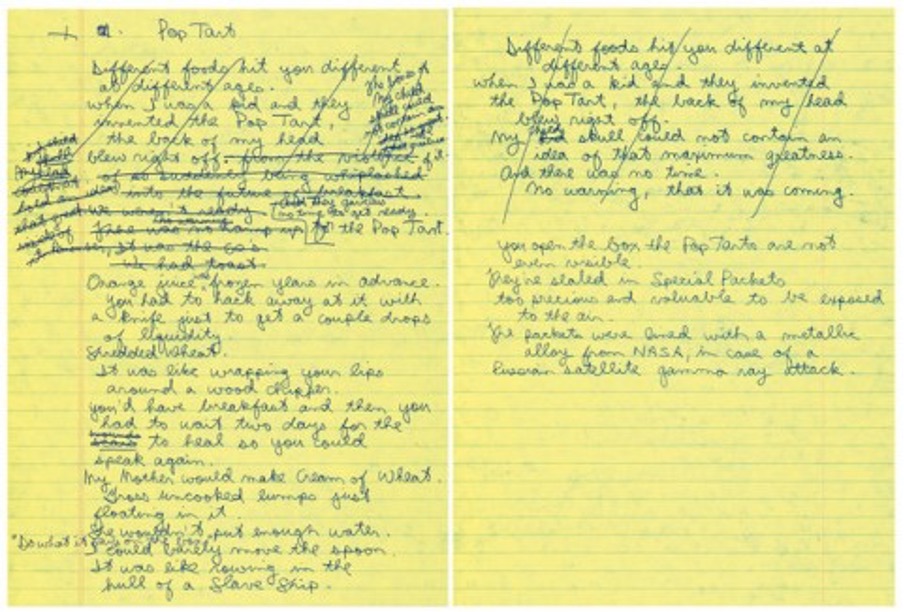 1. Pop Tart
Different foods hit you different
at different ages.
when I was a kid and they
invented the Pop Tart,
the back of my head
blew right off. from the violence of it
of so suddenly being whiplashed
into the future of breakfast
we weren't ready
no time to get ready.
There was no ramp up to the Pop Tart.
It was the 60's
We had toast
Orange juice was frozen years in advance.
you had to hack away at it with
a knife just to get a couple drops
of liquidity.
Shredded Wheat.
It was like wrapping your lips
around a wood chipper.
you'd have breakfast and then you
had to wait two days for the
to heal so you could
speak again.
My Mother would make Cream of Wheat.
Gross uncooked lumps just
floating in it.
She wouldn't put enough water.
"Do what it says on the box."
I could barely move the spoon.
It was like rowing in the
hull of a Slave Ship.
Different foods hit you different at
different ages.
when I was a kid and they invented
the Pop Tart, the back of my head
blew right off.
My skull could not contain an
idea of that maximum greatness.
And there was no time.
No warning, that it was coming.
you open the box the Pop Tarts are not
even visible.
They're sealed in Special Packets
too precious and valuable to be exposed
to the air.
The packets were lined with a metallic
alloy from NASA, in case of a
Russian satellite gamma ray attack.